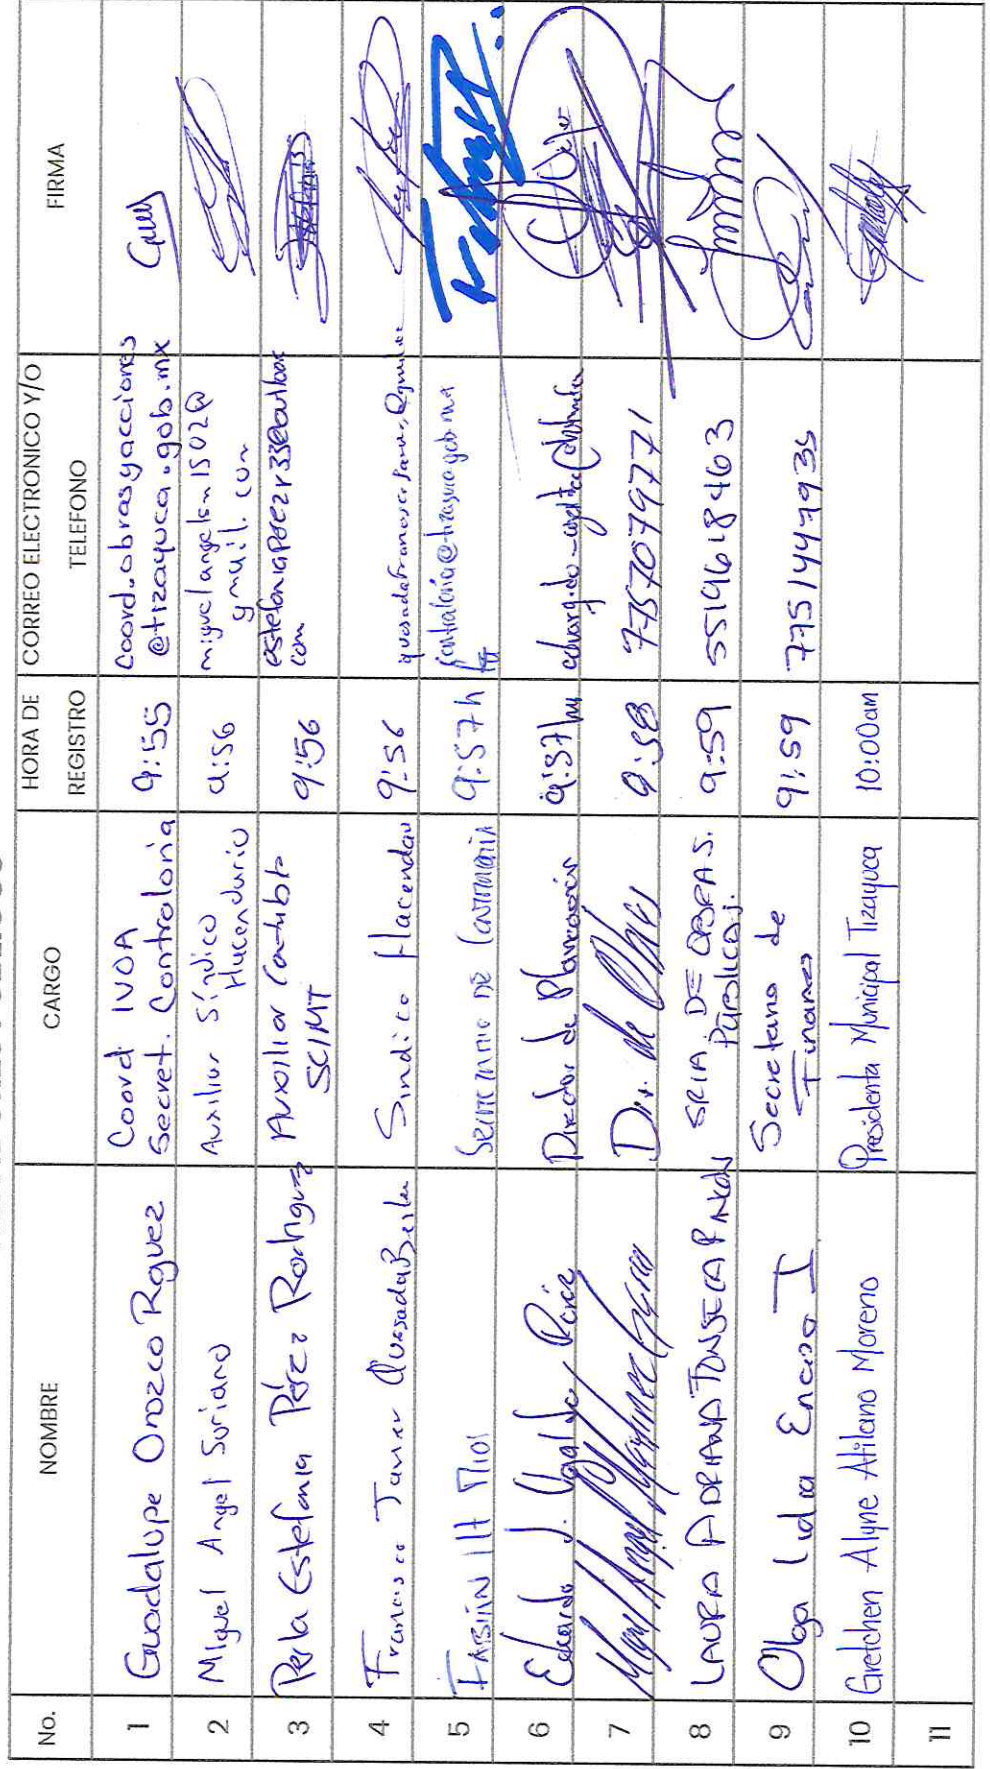 No.
NOMBRE
CARGO
HORA DE
REGISTRO
CORREO ELECTRONICO Y/O
TELEFONO
FIRMA
1
Guadalupe Orozco Rguez
Coord IVOA
Secret. Contraloria
9:55
coord.obrasyacciones
@tizayuca.gob.mx
2
Miguel Angel Soriano
Auxiliar Síndico
Hacendario
9:56
miguelangelsn1502@
gmail.com
3
Perla Estefania Pérez Rodriguez
Auxiliar Contable
SCIMT
9:56
estefaniaperezr33@outlook
com
4
Francisco Javier Quesada
Sindico Hacendar
9:56
5
FABIÁN
9:57h
contraloria@tizayuca.gob.mx
6
Eduardo J.
Director de Planeación
9:57
7
Miguel Angel Martinez
Dir. de Obras
9:58
7757079771
8
LAURA ADRIANA FONSECA RINCÓN
SRIA. DE OBRAS.
PÚBLICAS.
9:59
5519618463
9
Olga Lidia Enciso I
Secretaria de
Finanzas
9:59
7751447935
10
Gretchen Alyne Atilano Moreno
Presidenta Municipal Tizayuca
10:00am
11